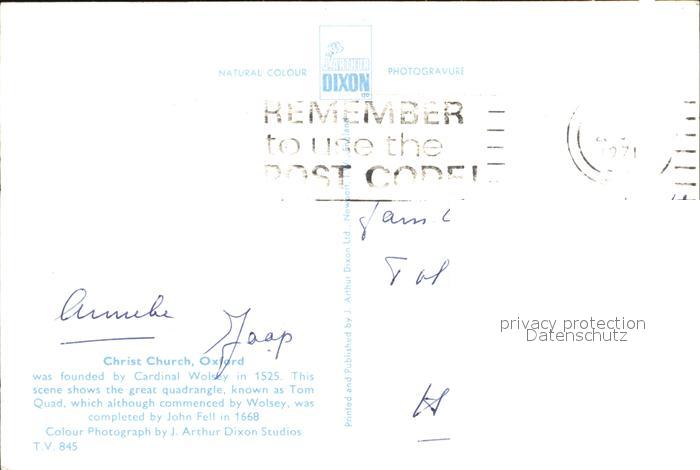 NATURAL COLOUR
J. ARTHUR
DIXON
PHOTOGRAVURE
REMEMBER
to use the
POST CODE!
1971
Fam
privacy protection
Datenschutz
Jaap
Christ Church, Oxford
was founded by Cardinal Wolsey in 1525. This
scene shows the great quadrangle, known as Tom
Quad, which although commenced by Wolsey, was
completed by John Fell in 1668
Colour Photograph by J. Arthur Dixon Studios
T.V. 845
Printed and Published by J. Arthur Dixon Ltd., Newport